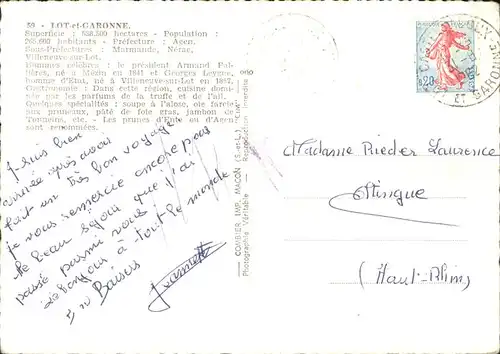 59 - LOT-et-GARONNE.
Superficie : 538.500 hectares - Population :
265.000 habitants - Préfecture : Agen.
Sous-Préfectures : Marmande, Nérac,
Villeneuve-sur-Lot.
Hommes célèbres : le président Armand Fal-
lières, né à Mézin en 1841 et Georges Leygues,
homme d'Etat, né à Villeneuve-sur-Lot en 1857.
Gastronomie : Dans cette région, cuisine domi-
née par les parfums de la truffe et de l'ail.
Quelques spécialités : soupe à l'alose, oie farcie
aux pruneaux, pâté de foie gras, jambon de
Tonneins, etc. - Les prunes d'Ente ou d'Agen
sont renommées.
Je suis bien
arrivée après avoir
fait un très bon voyage
je vous remercie encore pour
le beau séjour que j'ai
passé parmi vous
le bonjour à tout le monde
Baisers
Jeannette
COMBIER IMP. MACON (S.-et-L.) "CIM"
Photographie Véritable - Reproduction interdite
0,20
ET GARONNE
Madame Rieder Laurence
Altingue
(Haut-Rhin)